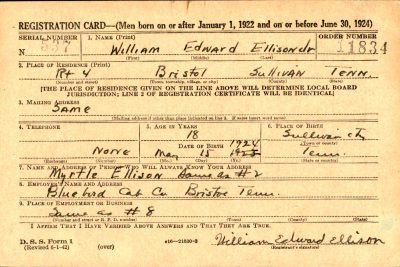 REGISTRATION CARD—(Men born on or after January 1, 1922 and on or before June 30, 1924)
SERIAL NUMBER 1. NAME (Print) ORDER NUMBER
N 337 William Edward Ellison Jr 11834
(First) (Middle) (Last)
2. PLACE OF RESIDENCE (Print)
Rt 4 Bristol Sullivan Tenn.
(Number and street) (Town, township, village, or city) (County) (State)
[THE PLACE OF RESIDENCE GIVEN ON THE LINE ABOVE WILL DETERMINE LOCAL BOARD
JURISDICTION; LINE 2 OF REGISTRATION CERTIFICATE WILL BE IDENTICAL]
3. MAILING ADDRESS
Same
[Mailing address if other than place indicated on line 2. If same insert word same]
4. TELEPHONE 5. AGE IN YEARS 6. PLACE OF BIRTH
18 Sullivan
DATE OF BIRTH (Town or county)
None Mar 15 1924 Tenn.
(Exchange) (Number) (Mo.) (Day) (Yr.) (State or country)
7. NAME AND ADDRESS OF PERSON WHO WILL ALWAYS KNOW YOUR ADDRESS
Myrtle Ellison Same as #2
8. EMPLOYER'S NAME AND ADDRESS
Bluebird Cab Co. Bristol Tenn.
9. PLACE OF EMPLOYMENT OR BUSINESS
Same as #8
(Number and street or R. F. D. number) (Town) (County) (State)
I AFFIRM THAT I HAVE VERIFIED ABOVE ANSWERS AND THAT THEY ARE TRUE.
D. S. S. Form 1
(Revised 6-1-42) (over) 16—21630-2 William Edward Ellison
(Registrant's signature)